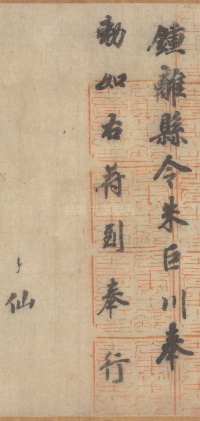 鍾離縣令朱巨川奉
勅如右符到奉行
仙